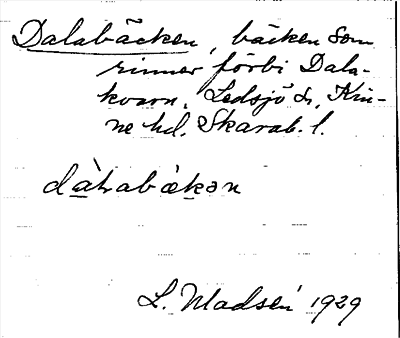 Dalabäcken, bäcken som
rinner förbi Dala-
kvarn. Ledsjö s., Kin-
ne hd. Skarab. l.
L. Madsén 1929